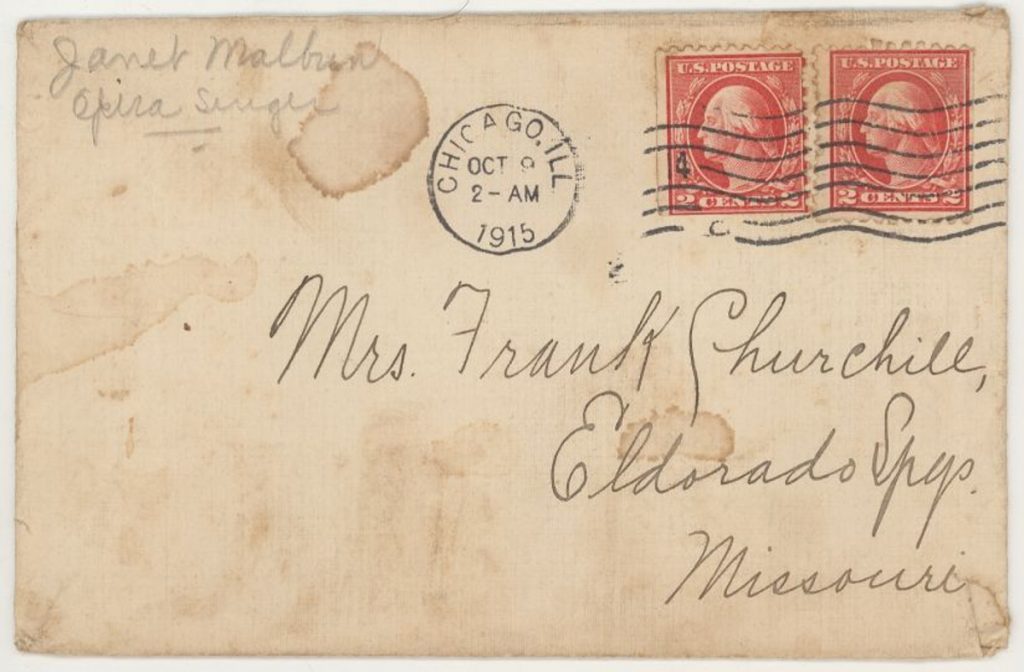 Janet Malbun
Opera Singer
CHICAGO, ILL
OCT 9
2-AM
1915
U.S. POSTAGE
4
2 CENTS 2
U.S. POSTAGE
2 CENTS 2
Mrs. Frank Churchill,
Eldorado Spgs.
Missouri